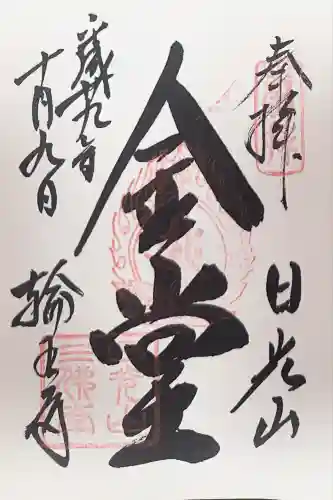 奉拝
日光山
金堂
平成廿九年
十月九日
輪王寺
三佛堂